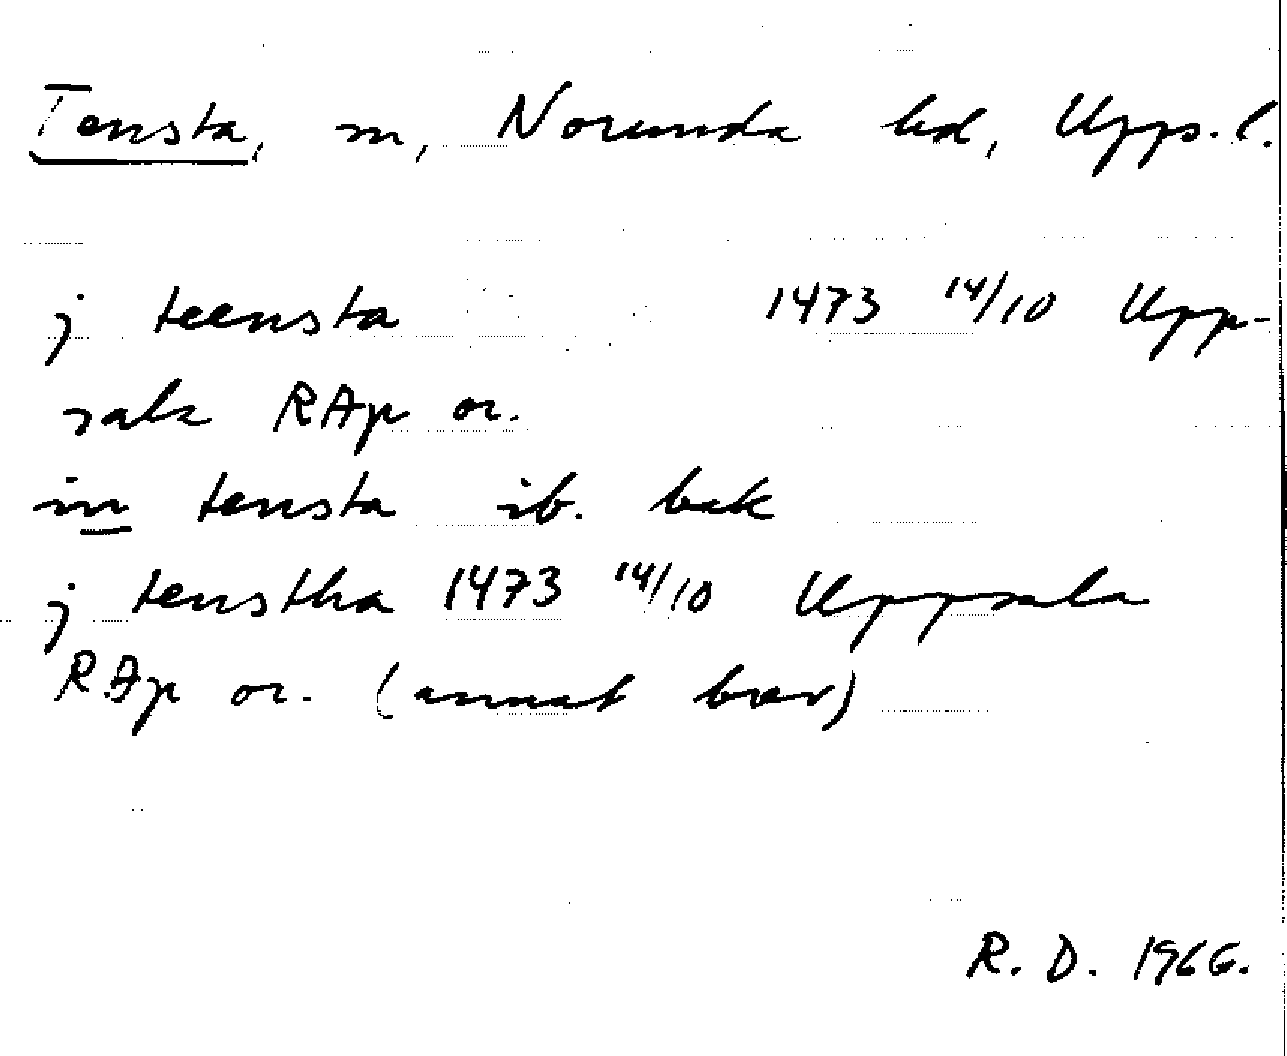 Tensta, sn, Norunda hd, Upps. l.
j teensta 1473 14/10 Upp-
sala RAp or.
in tensta ib. bak
j tenstha 1473 14/10 Uppsala
RAp or. (annat brev)
R. D. 1966.